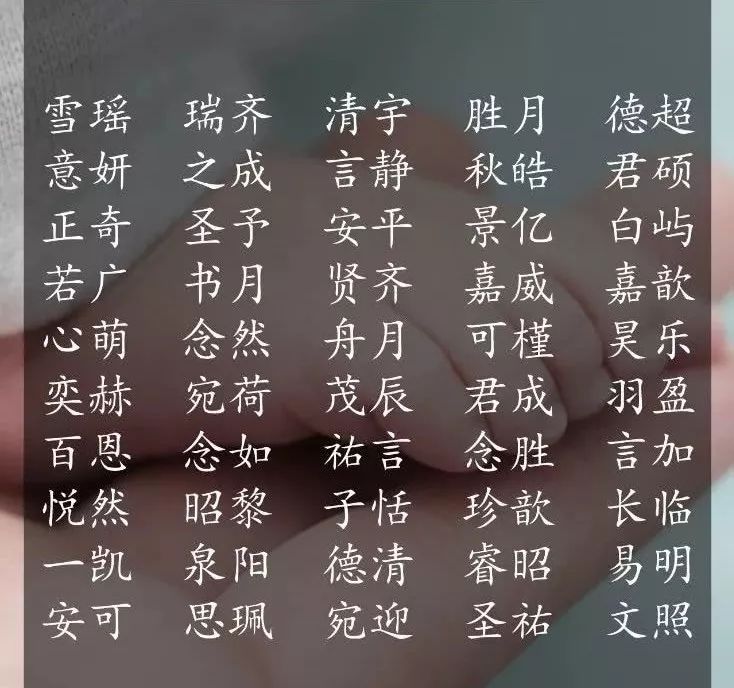 雪瑶 瑞齐 清宇 胜月 德超
意妍 之成 言静 秋皓 君硕
正奇 圣予 安平 景亿 白屿
若广 书月 贤齐 嘉威 嘉歆
心萌 念然 舟月 可槿 昊乐
奕赫 宛荷 茂辰 君成 羽盈
百恩 念如 祐言 念胜 言加
悦然 昭黎 子恬 珍歆 长临
一凯 泉阳 德清 睿昭 易明
安可 思珮 宛迎 圣祐 文照